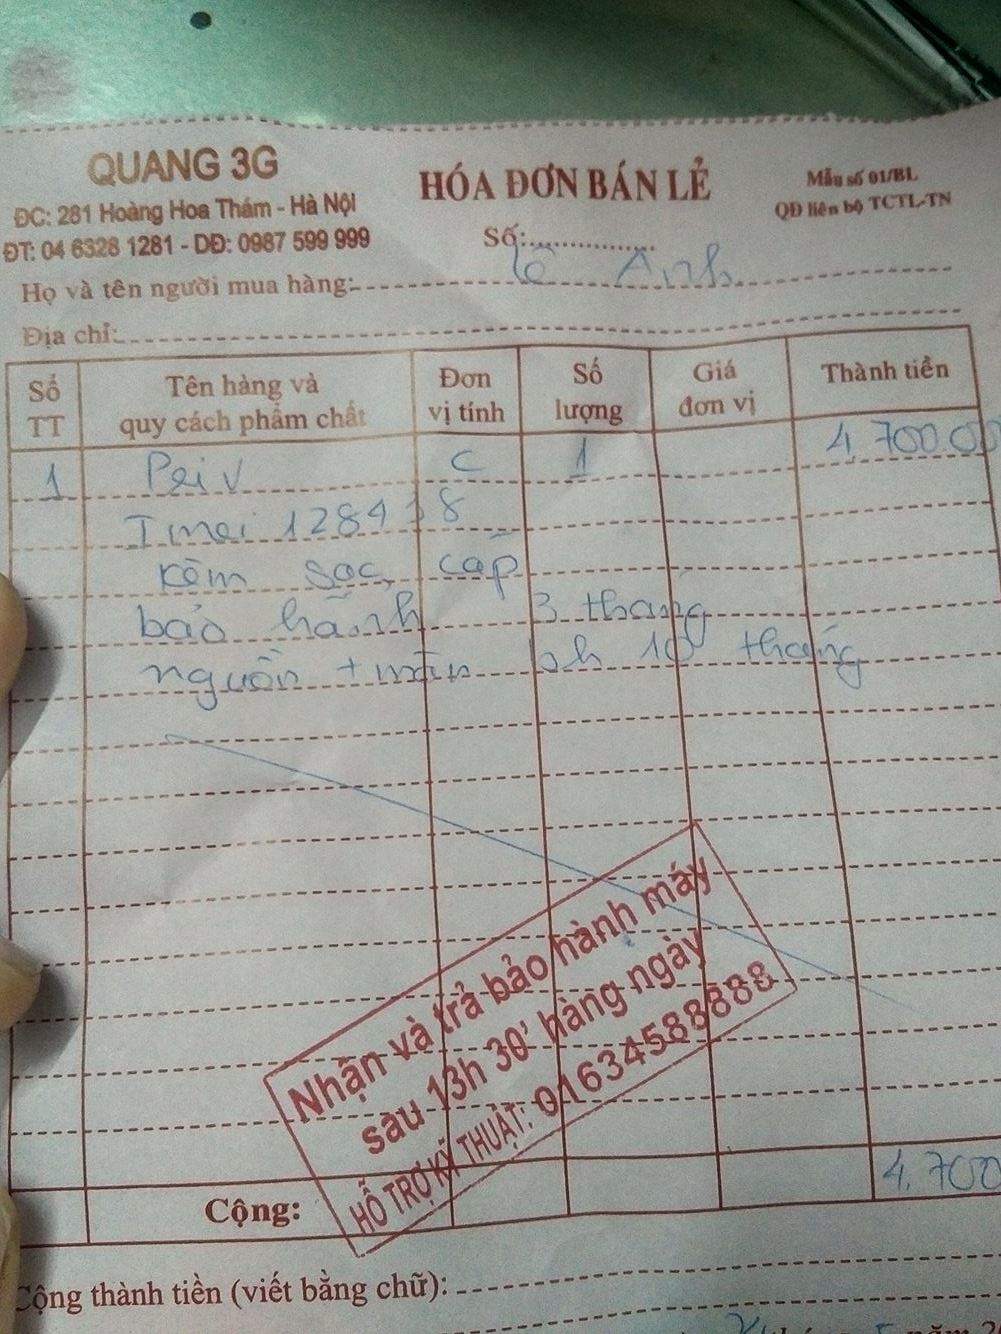 QUANG 3G
ĐC: 281 Hoàng Hoa Thám - Hà Nội
ĐT: 04 6328 1281 - DĐ: 0987 599 999
HÓA ĐƠN BÁN LẺ
Số:
Mẫu số 01/BL
QĐ liên bộ TCTL-TN
Họ và tên người mua hàng: Lê Anh
Địa chỉ:
Số TT Tên hàng và quy cách phẩm chất Đơn vị tính Số lượng Giá đơn vị Thành tiền
1 C 1 4.700.00
Imei 128438
kèm sạc, cáp
bảo hành 3 tháng
nguồn + màn bh 10 tháng
Nhận và trả bảo hành máy
sau 13h 30' hàng ngày
HỖ TRỢ KỸ THUẬT: 01634588888
Cộng: 4.700
Cộng thành tiền (viết bằng chữ):